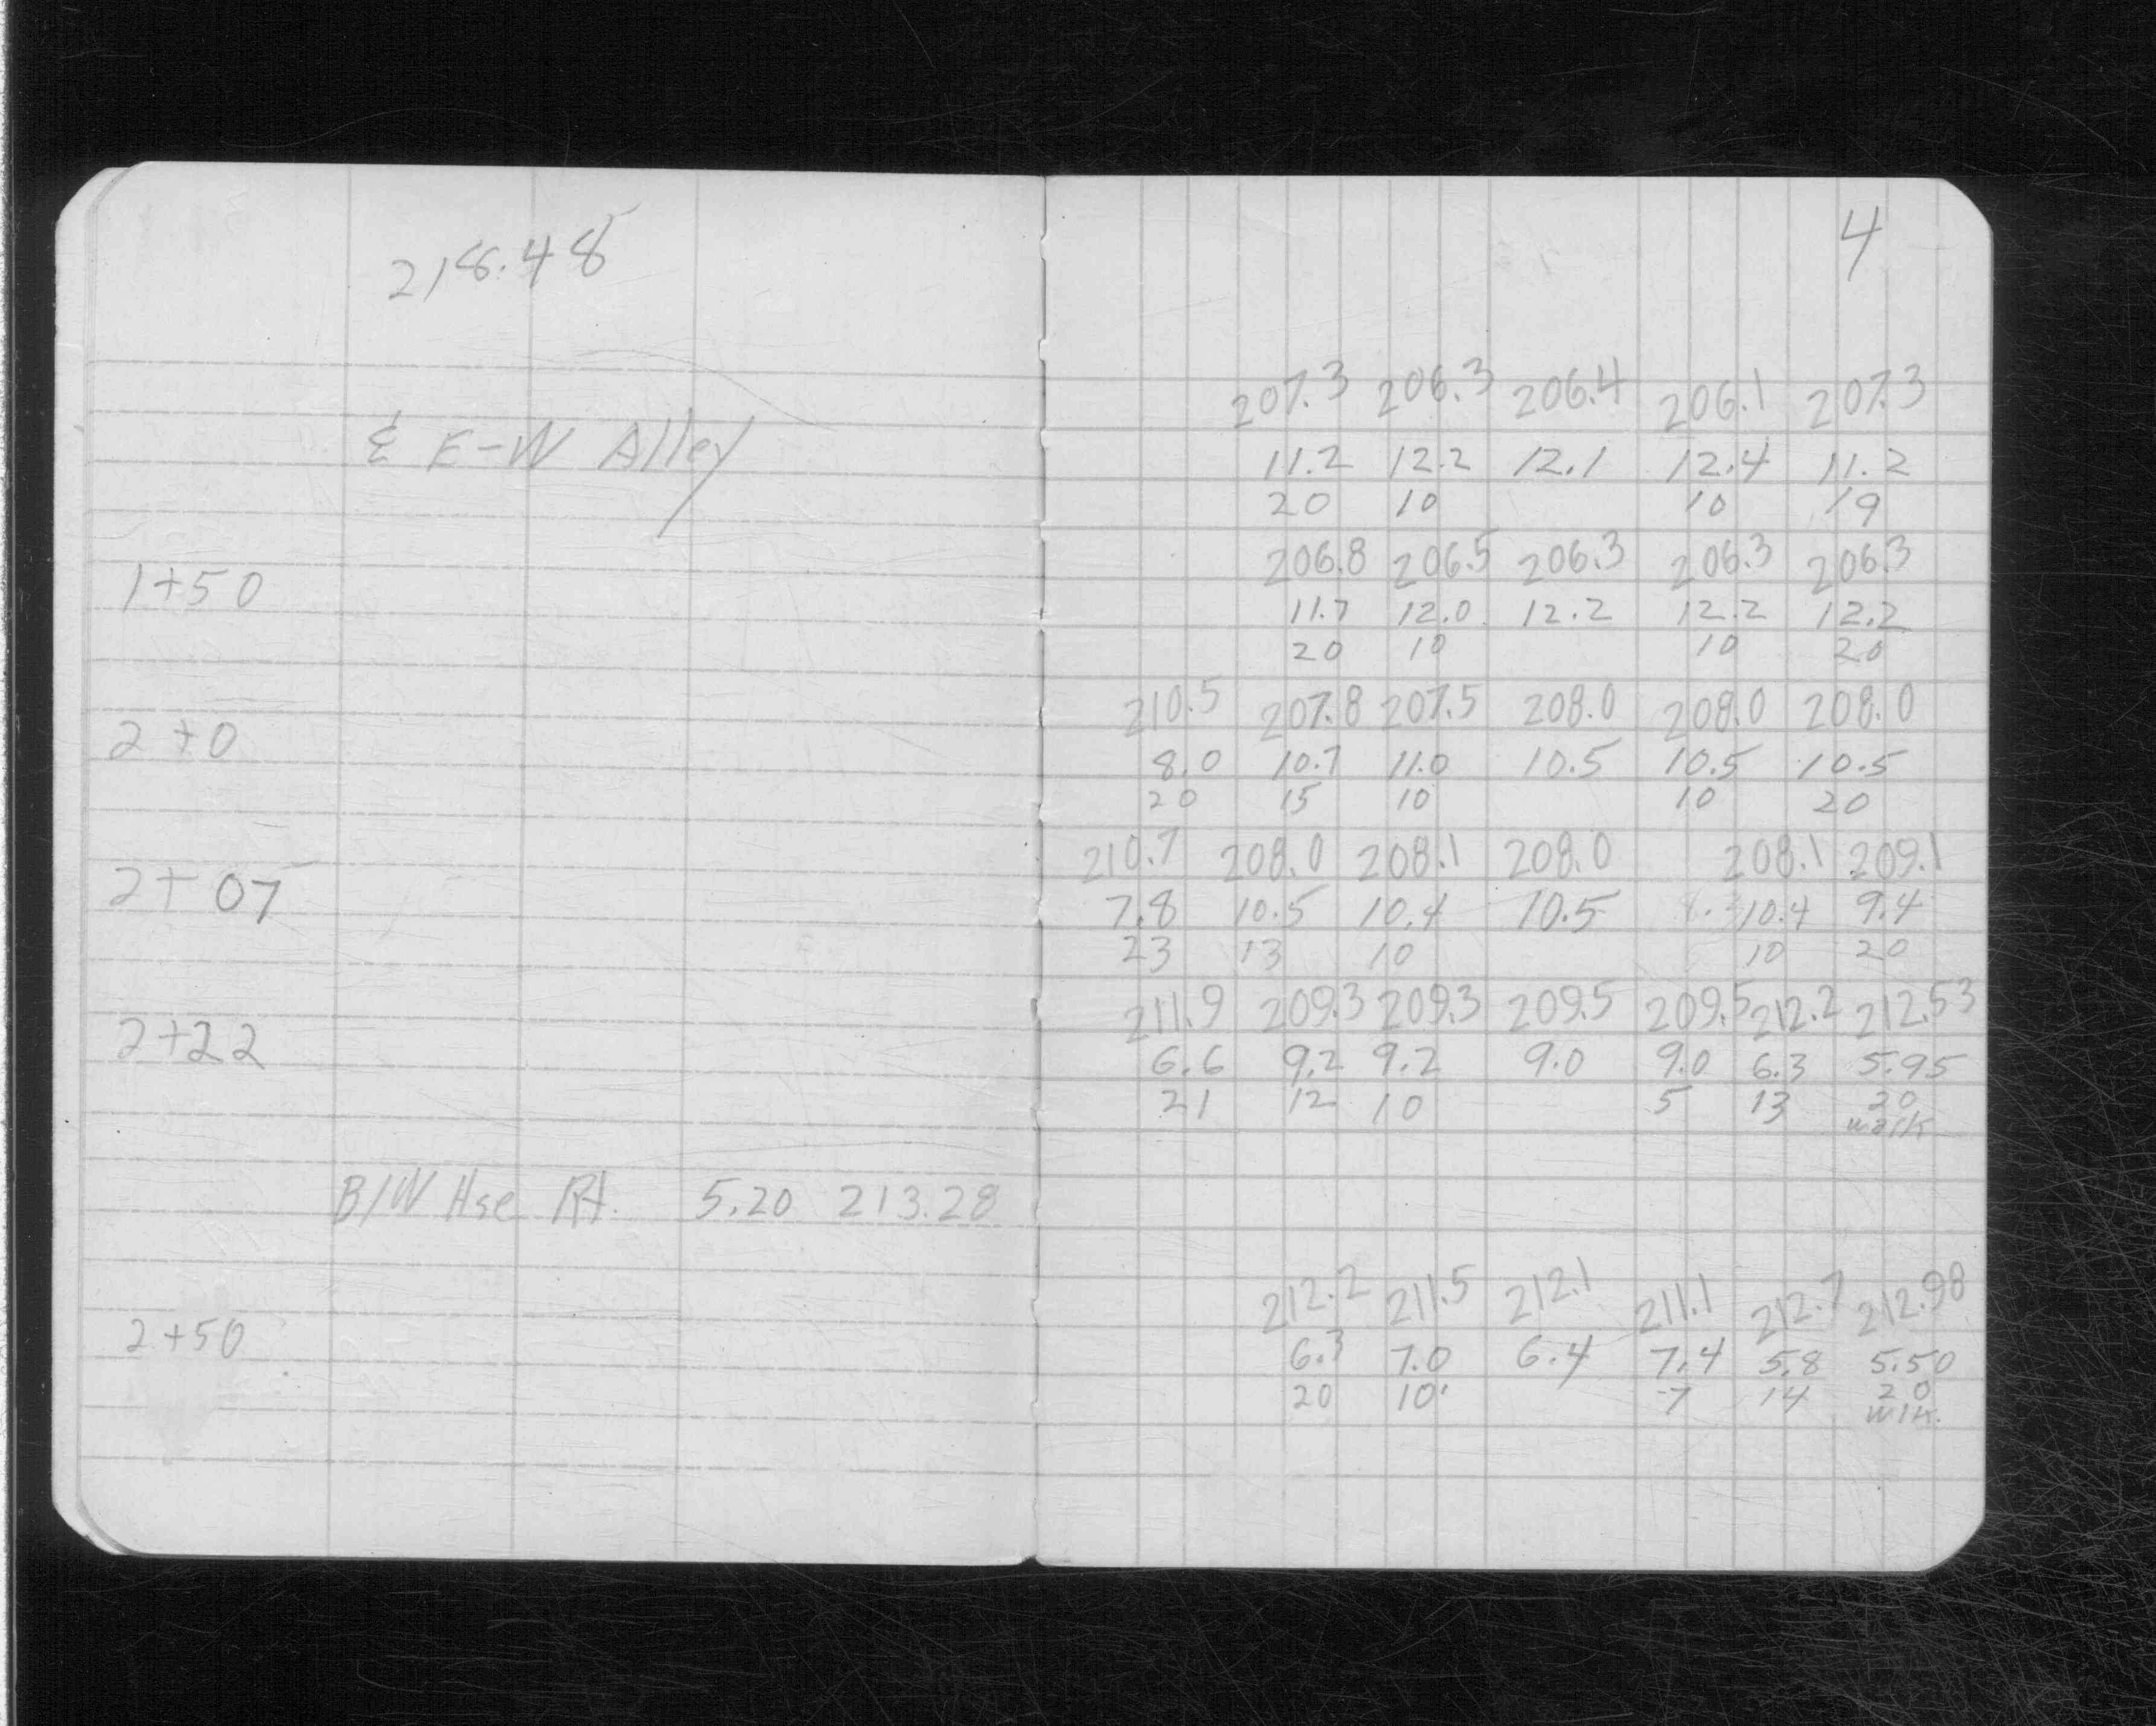 218.48
4
207.3 206.3 206.4 206.1 207.3
& E-W Alley 11.2 12.2 12.1 12.4 11.2
20 10 10 19
206.8 206.5 206.3 206.3 206.3
1+50 11.7 12.0 12.2 12.2 12.2
20 10 10 20
210.5 207.8 207.5 208.0 208.0 208.0
2+0 8.0 10.7 11.0 10.5 10.5 10.5
20 15 10 10 20
210.7 208.0 208.1 208.0 208.1 209.1
2+07 7.8 10.5 10.4 10.5 10.4 9.4
23 13 10 10 20
211.9 209.3 209.3 209.5 209.5 212.2 212.53
2+22 6.6 9.2 9.2 9.0 9.0 6.3 5.95
21 12 10 5 13 20
walk
B/W Hse Rt. 5.20 213.28
212.2 211.5 212.1 211.1 212.7 212.98
2+50 6.3 7.0 6.4 7.4 5.8 5.50
20 10 7 14 20
wlk.